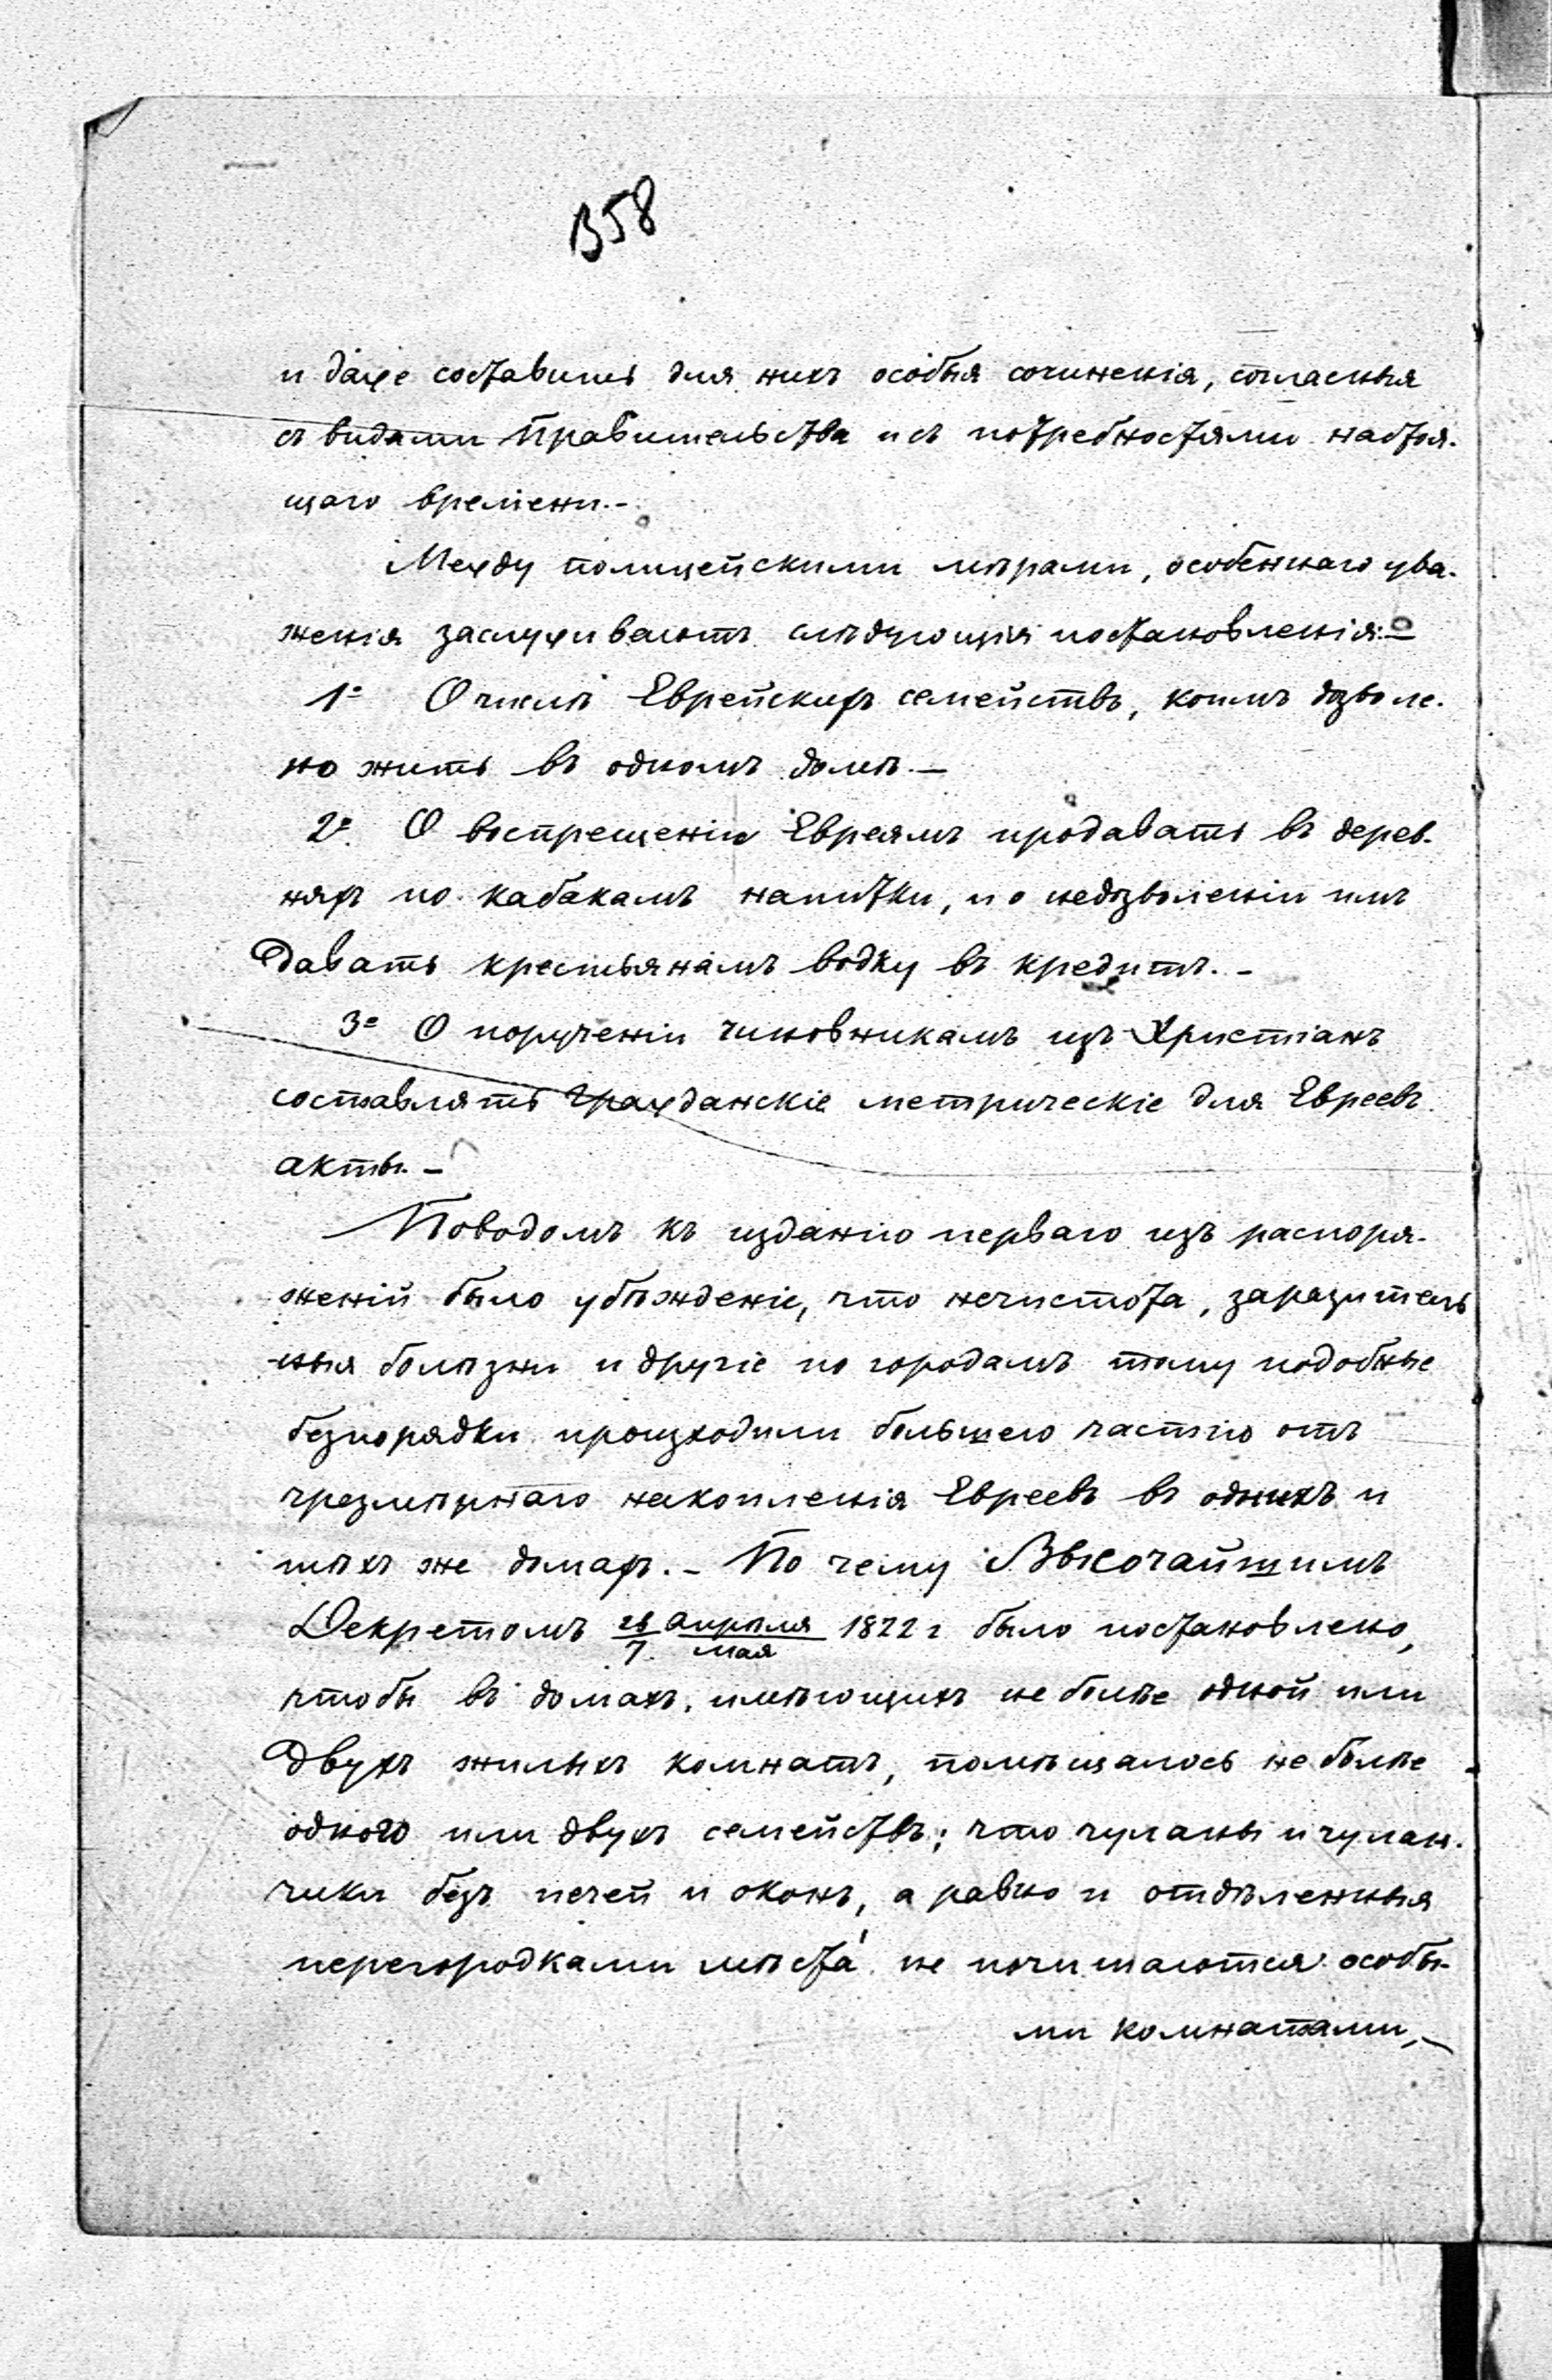 B58
и даже составить для нихъ особыя сочиненія, согласныя
съ видами Правительства и съ потребностями настоя-
щаго времени.-
Между полицейскими мѣрами, особеннаго ува-
женія заслуживаютъ слѣдующія постановленія:-
1е О числѣ Еврейскихъ семействъ, коимъ дозволе-
но жить въ одномъ домѣ.-
2е. О воспрещеніи Евреямъ продавать въ дерев-
няхъ по кабакамъ напитки, и о недозволеніи имъ
давать крестьянамъ водку въ кредитъ.-
3е О порученіи чиновникамъ изъ Христіанъ
составлять гражданскіе метрическіе для Евреевъ
акты.-
Поводомъ къ изданію перваго изъ распоря-
женій было убѣжденіе, что нечистота, заразитель
ныя болѣзни и другіе по городамъ тому подобные
безпорядки произходили большею частію отъ
чрезмѣрнаго накопленія Евреевъ въ однихъ и
тѣхъ же домахъ.- По чему Высочайшимъ
Декретомъ 28/7 апрѣля/мая 1822 г было постановлено,
чтобы въ домахъ, имѣющихъ не болѣе одной или
двухъ жилыхъ комнатъ, помѣщалось не болѣе
одного или двухъ семействъ; что чуланы и чулан-
чики безъ печей и оконъ, а равно и отдѣленныя
перегородками мѣста́ не почитаются особы-
ми комнатами,-